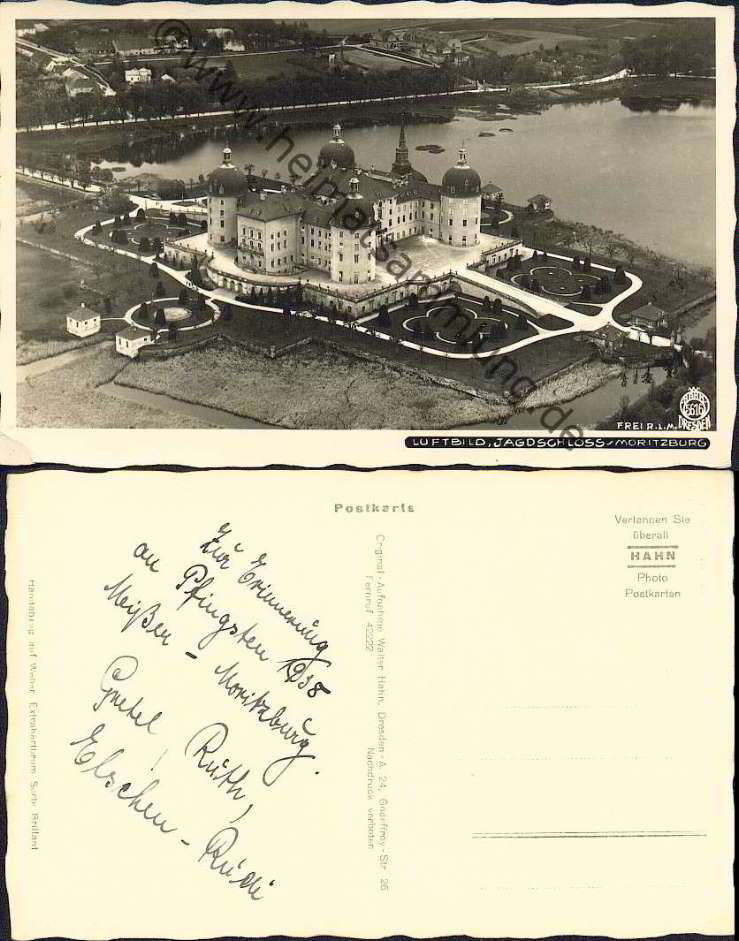 © www.heimatsammlung.de
HAHN
5616
DRESDEN
FREI R.L.M.
LUFTBILD, JAGDSCHLOSS-MORITZBURG
Postkarte
Verlangen Sie
überall
HAHN
Photo
Postkarten
Zur Erinnerung
an Pfingsten 1938
Meißen - Moritzburg.
Gretel, Ruth,
Elschen - Rudi
Original-Aufnahme Walter Hahn, Dresden-A. 24, Godeffroy-Str. 26
Fernruf 42222 Nachdruck verboten
Handabzug auf Welter Extrahartbrom Sorte Brillant